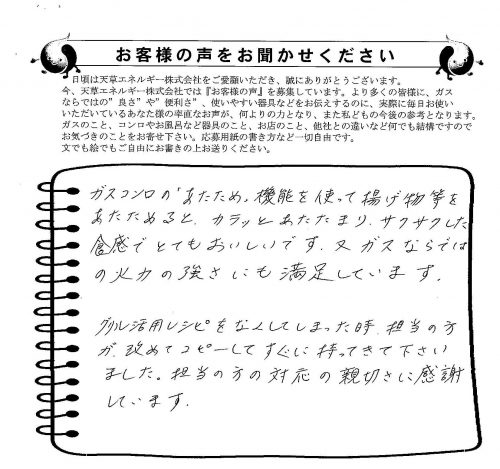 お客様の声をお聞かせください
日頃は天草エネルギー株式会社をご愛顧いただき、誠にありがとうございます。
今、天草エネルギー株式会社では『お客様の声』を募集しています。より多くの皆様に、ガス
ならではの”良さ”や”便利さ”、使いやすい器具などをお伝えするのに、実際に毎日お使い
いただいているあなた様の率直なお声が、何よりの力となり、また私どもの今後の参考となります。
ガスのこと、コンロやお風呂など器具のこと、お店のこと、他社との違いなど何でも結構ですので
お気づきのことをお寄せ下さい。応募用紙の書き方など一切自由です。
文でも絵でもご自由にお書きの上お送りください。
ガスコンロの'あたため,機能を使って揚げ物等を
あたためると、カラッとあたたまり、サクサクした
食感でとてもおいしいです、又ガスならでは
の火力の強さにも満足しています、
グリル活用レシピをなくしてしまった時、担当の方
が、改めてコピーしてすぐに持ってきて下さい
ました。担当の方の対応の親切さに感謝
しています、